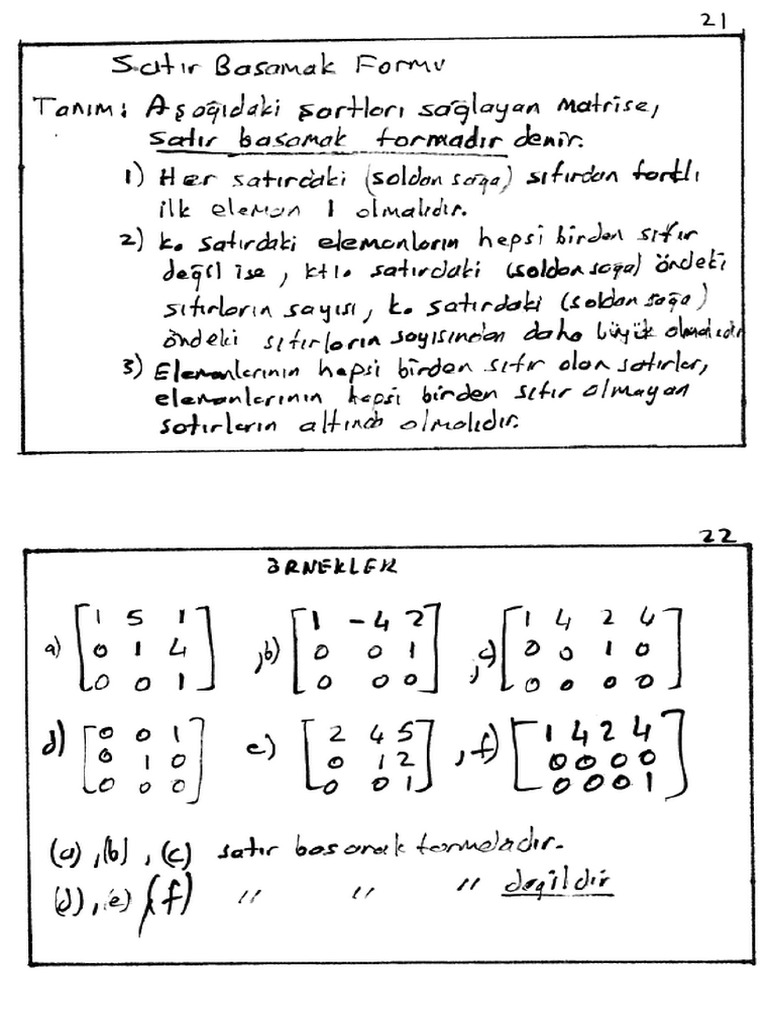 21
Satır Basamak Formu
Tanım: Aşağıdaki şartları sağlayan matrise,
satır basamak formadır denir.
1) Her satırdaki (soldan sağa) sıfırdan farklı
ilk eleman 1 olmalıdır.
2) k. satırdaki elemanların hepsi birden sıfır
değil ise, k+1. satırdaki (soldan sağa) öndeki
sıfırların sayısı, k. satırdaki (soldan sağa)
öndeki sıfırların sayısından daha büyük olmalıdır
3) Elemanlarının hepsi birden sıfır olan satırlar,
elemanlarının hepsi birden sıfır olmayan
satırların altında olmalıdır.
22
ÖRNEKLER
a) [1 5 1 , b) [1 -4 2 , c) [1 4 2 4
0 1 4 0 0 1 0 0 1 0
0 0 1] 0 0 0] 0 0 0 0]
d) [0 0 1 e) [2 4 5 , f) [1 4 2 4
0 1 0 0 1 2 0 0 0 0
0 0 0] 0 0 1] 0 0 0 1]
(a), (b), (c) satır basamak formdadır.
(d), (e) (f) " " " değildir